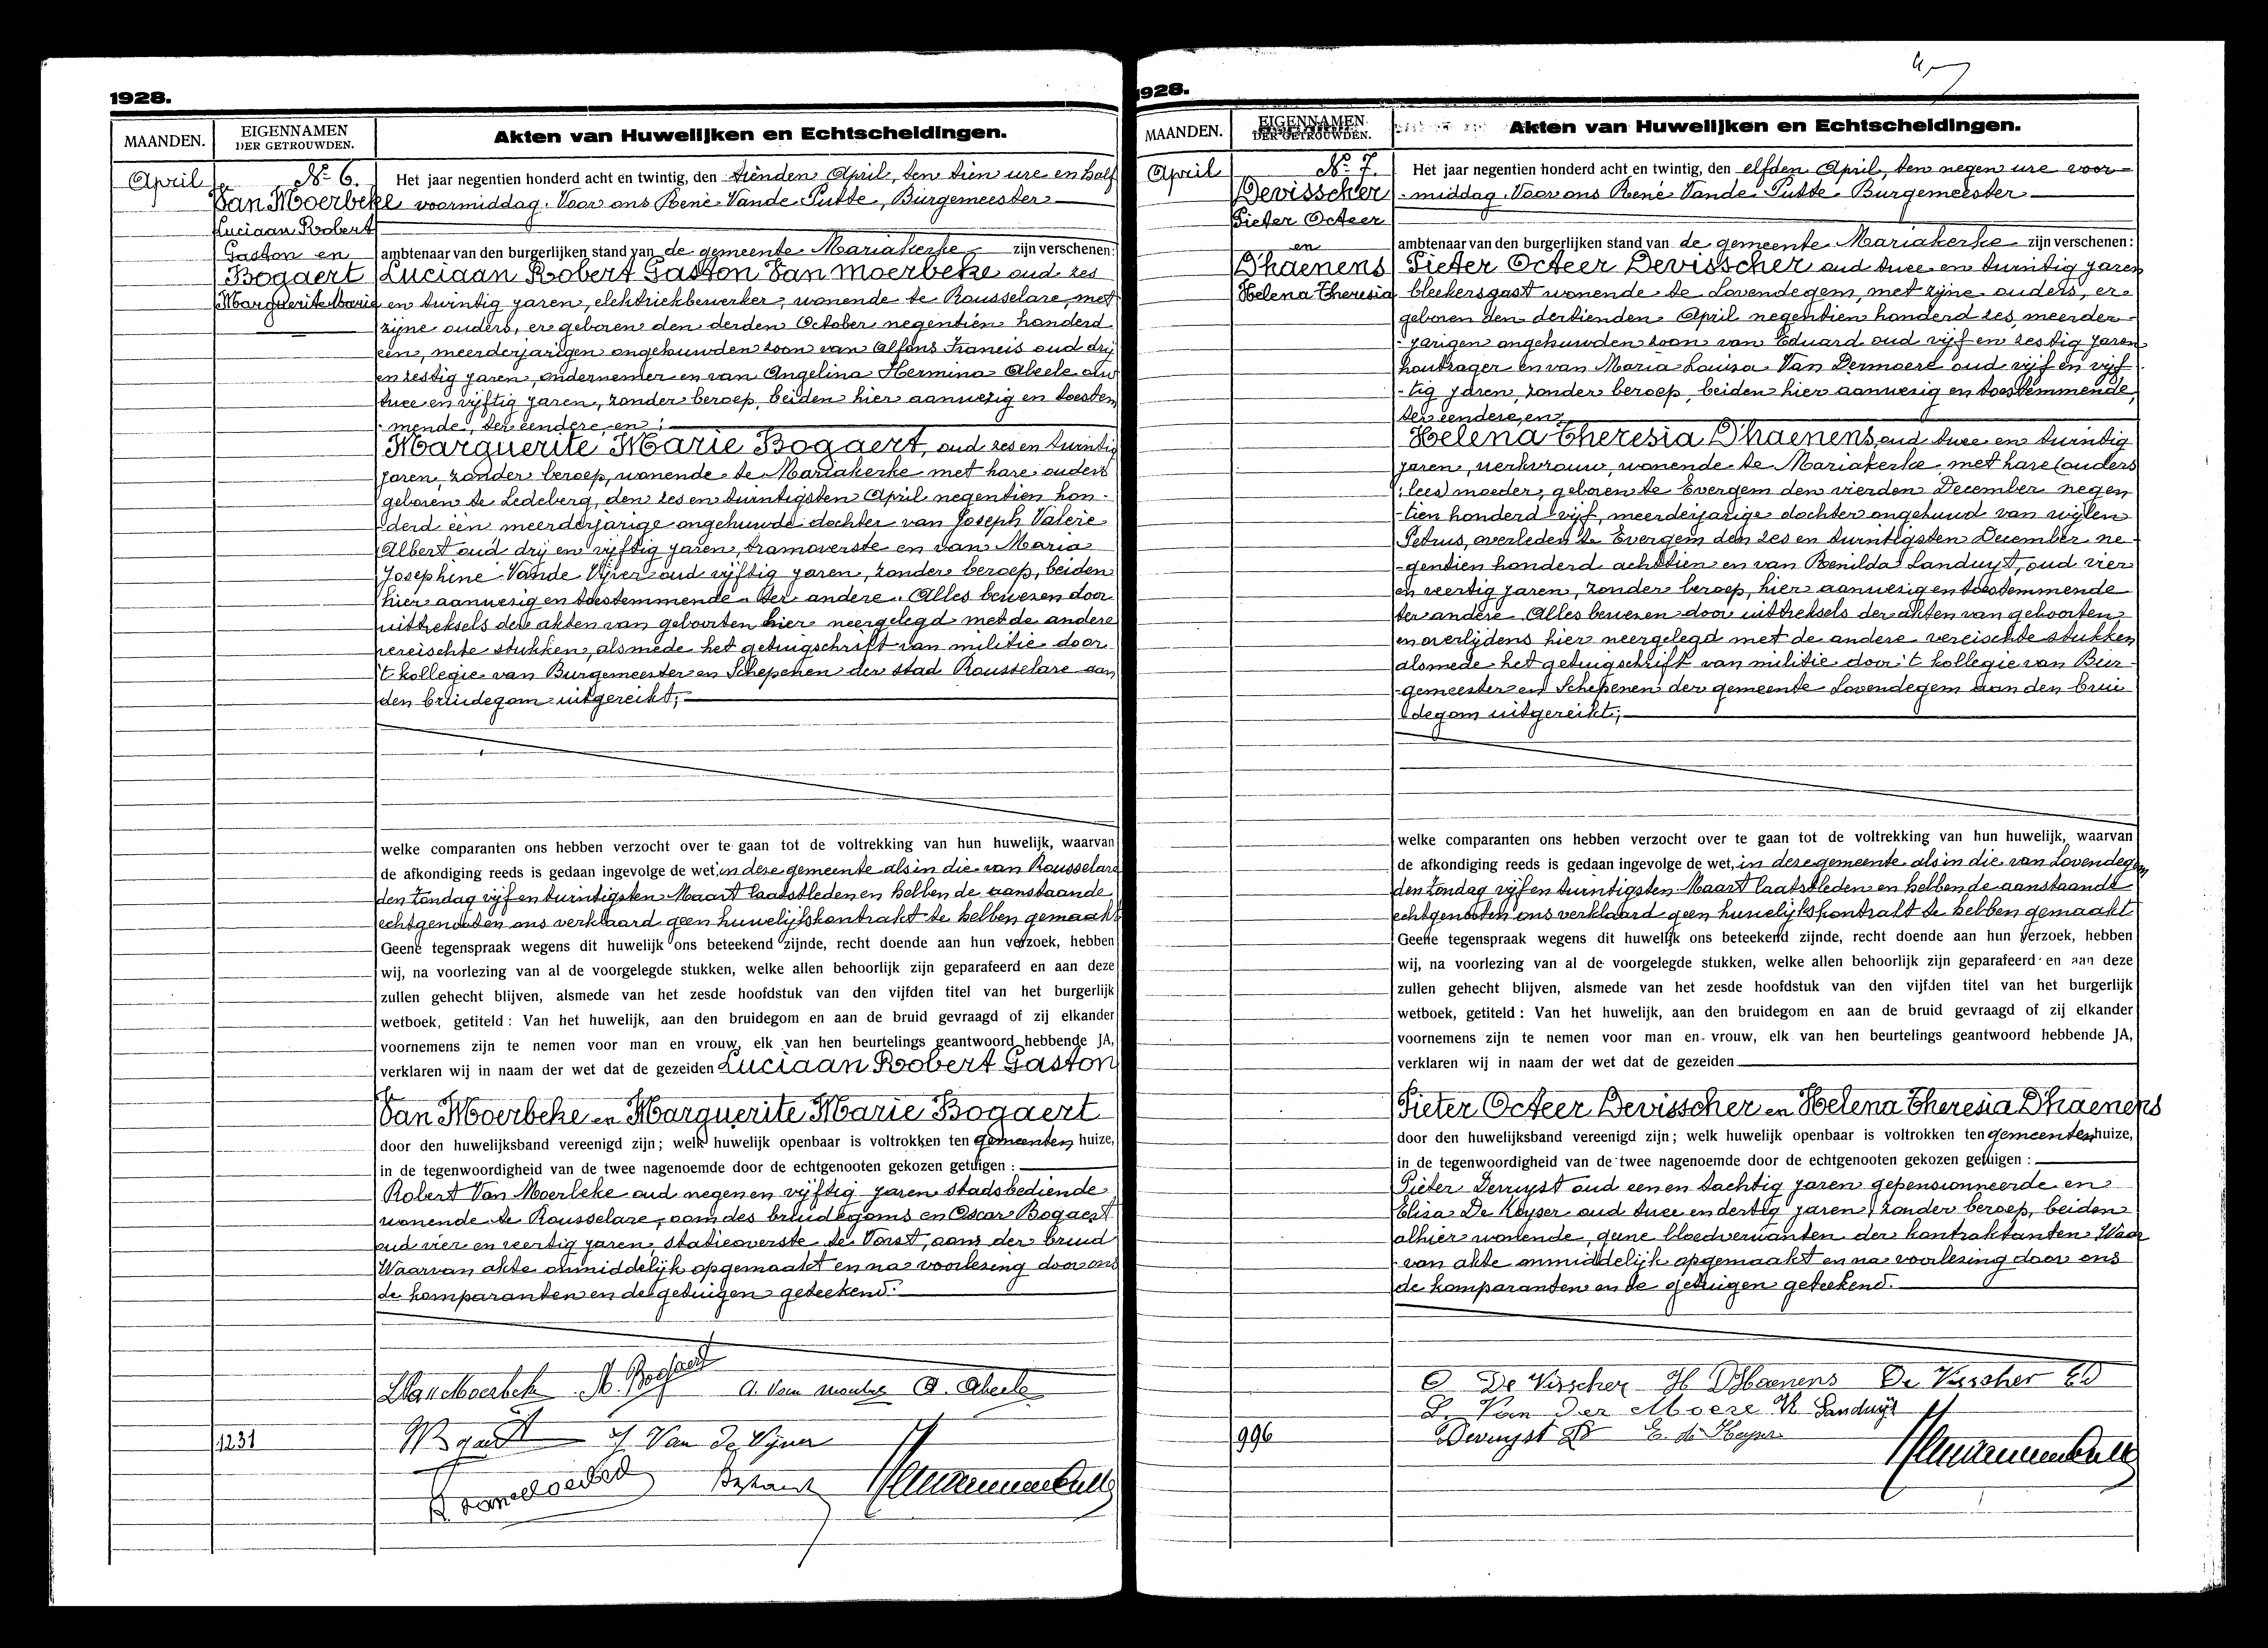 1928.
MAANDEN.
EIGENNAMEN
DER GETROUWDEN.
Akten van Huwelijken en Echtscheidingen.
April
No 6.
Van Moerbeke
Luciaan Robert
Gaston en
Bogaert
Marguerite Marie
Het jaar negentien honderd acht en twintig, den tienden April, ten tien ure en half
voormiddag. Voor ons René Vande Putte, Burgemeester
ambtenaar van den burgerlijken stand van de gemeente Mariakerke zijn verschenen:
Luciaan Robert Gaston Van Moerbeke oud zes
en twintig jaren, elektriekbewerker, wonende te Rousselare, met
zijne ouders, er geboren den derden October negentien honderd
een, meerderjarigen ongehuwden zoon van Alfons Francis oud drij
en zestig jaren, ondernemer en van Angelina Hermina Abeele oud
twee en vijftig jaren, zonder beroep, beiden hier aanwezig en toestem
mende, ter eendere, en;
Marguerite Marie Bogaert, oud zes en twintig
jaren, zonder beroep, wonende te Mariakerke met hare ouders
geboren te Ledeberg, den zes en twintigsten April negentien hon-
derd één meerderjarige ongehuwde dochter van Joseph Valere
Albert oud drij en vijftig jaren, tramoverste en van Maria
Josephine Vande Vijver oud vijftig jaren, zonder beroep, beiden
hier aanwezig en toestemmende ter andere. Alles bewezen door
uittreksels der akten van geboorten hier neergelegd met de andere
vereischte stukken, alsmede het getuigschrift van militie door
't kollegie van Burgemeester en Schepenen der stad Rousselare aan
den bruidegom uitgereikt;
welke comparanten ons hebben verzocht over te gaan tot de voltrekking van hun huwelijk, waarvan
de afkondiging reeds is gedaan ingevolge de wet, in deze gemeente als in die van Rousselare
den zondag vijf en twintigsten Maart laatstleden en hebben de aanstaande
echtgenooten ons verklaard geen huwelijkskontrakt te hebben gemaakt
Geene tegenspraak wegens dit huwelijk ons beteekend zijnde, recht doende aan hun verzoek, hebben
wij, na voorlezing van al de voorgelegde stukken, welke allen behoorlijk zijn geparafeerd en aan deze
zullen gehecht blijven, alsmede van het zesde hoofdstuk van den vijfden titel van het burgerlijk
wetboek, getiteld : Van het huwelijk, aan den bruidegom en aan de bruid gevraagd of zij elkander
voornemens zijn te nemen voor man en vrouw, elk van hen beurtelings geantwoord hebbende JA,
verklaren wij in naam der wet dat de gezeiden Luciaan Robert Gaston
Van Moerbeke en Marguerite Marie Bogaert
door den huwelijksband vereenigd zijn; welk huwelijk openbaar is voltrokken ten gemeenten huize,
in de tegenwoordigheid van de twee nagenoemde door de echtgenooten gekozen getuigen :
Robert Van Moerbeke oud negen en vijftig jaren stadsbediende
wonende te Rousselare, oom des bruidegoms en Oscar Bogaert
oud vier en veertig jaren, statieoverste te Vorst, oom der bruid
Waarvan akte onmiddelijk opgemaakt en na voorlezing door ons
de komparanten en de getuigen geteekend.
M. Bogaert
A. Abeele
J. Van De Vijver
1231
1928.
MAANDEN.
EIGENNAMEN
DER GETROUWDEN.
Akten van Huwelijken en Echtscheidingen.
April
No 7.
Devisscher
Pieter Octeer
en
Dhaenens
Helena Theresia
Het jaar negentien honderd acht en twintig, den elfden April, ten negen ure voor-
-middag. Voor ons René Vande Putte Burgemeester
ambtenaar van den burgerlijken stand van de gemeente Mariakerke zijn verschenen:
Pieter Octeer Devisscher oud twee en twintig jaren
bleekersgast wonende te Lovendegem, met zijne ouders, er
geboren den dertienden April negentien honderd zes, meerder-
-jarigen ongehuwden zoon van Eduard oud vijf en zestig jaren
houtzager en van Maria Louisa Van Dermoere oud vijf en vijf
-tig jaren, zonder beroep, beiden hier aanwezig en toestemmende,
ter eendere, en;
Helena Theresia Dhaenens, oud twee en twintig
jaren, werkvrouw, wonende te Mariakerke, met hare (ouders
: lees) moeder, geboren te Evergem den vierden December negen
-tien honderd vijf, meerderjarige dochter ongehuwd van wijlen
Petrus, overleden te Evergem den zes en twintigsten December ne
-gentien honderd achttien en van Benilda Landuyt, oud vier
en veertig jaren, zonder beroep, hier aanwezig en toestemmende
ter andere. Alles bewezen door uittreksels der akten van geboorten
en overlijdens hier neergelegd met de andere vereischte stukken
alsmede het getuigschrift van militie door 't kollegie van Bur-
-gemeester en Schepenen der gemeente Lovendegem aan den brui
degom uitgereikt;
welke comparanten ons hebben verzocht over te gaan tot de voltrekking van hun huwelijk, waarvan
de afkondiging reeds is gedaan ingevolge de wet, in deze gemeente als in die van Lovendegem
den zondag vijf en twintigsten Maart laatstleden en hebben de aanstaande
echtgenooten ons verklaard geen huwelijkskontrakt te hebben gemaakt
Geene tegenspraak wegens dit huwelijk ons beteekend zijnde, recht doende aan hun verzoek, hebben
wij, na voorlezing van al de voorgelegde stukken, welke allen behoorlijk zijn geparafeerd en aan deze
zullen gehecht blijven, alsmede van het zesde hoofdstuk van den vijfden titel van het burgerlijk
wetboek, getiteld : Van het huwelijk, aan den bruidegom en aan de bruid gevraagd of zij elkander
voornemens zijn te nemen voor man en vrouw, elk van hen beurtelings geantwoord hebbende JA,
verklaren wij in naam der wet dat de gezeiden
Pieter Octeer Devisscher en Helena Theresia Dhaenens
door den huwelijksband vereenigd zijn; welk huwelijk openbaar is voltrokken ten gemeenten huize,
in de tegenwoordigheid van de twee nagenoemde door de echtgenooten gekozen getuigen :
Pieter Deruyst oud een en tachtig jaren gepensionneerde en
Elisa De Keyser oud twee en dertig jaren, zonder beroep, beiden
alhier wonende, gene bloedverwanten der kontraktanten. Waar
-van akte onmiddelijk opgemaakt en na voorlezing door ons
de komparanten en de getuigen geteekend.
O De Visscher H DHaenens De Visscher ED
L. Van Der Moere Landuyt
996